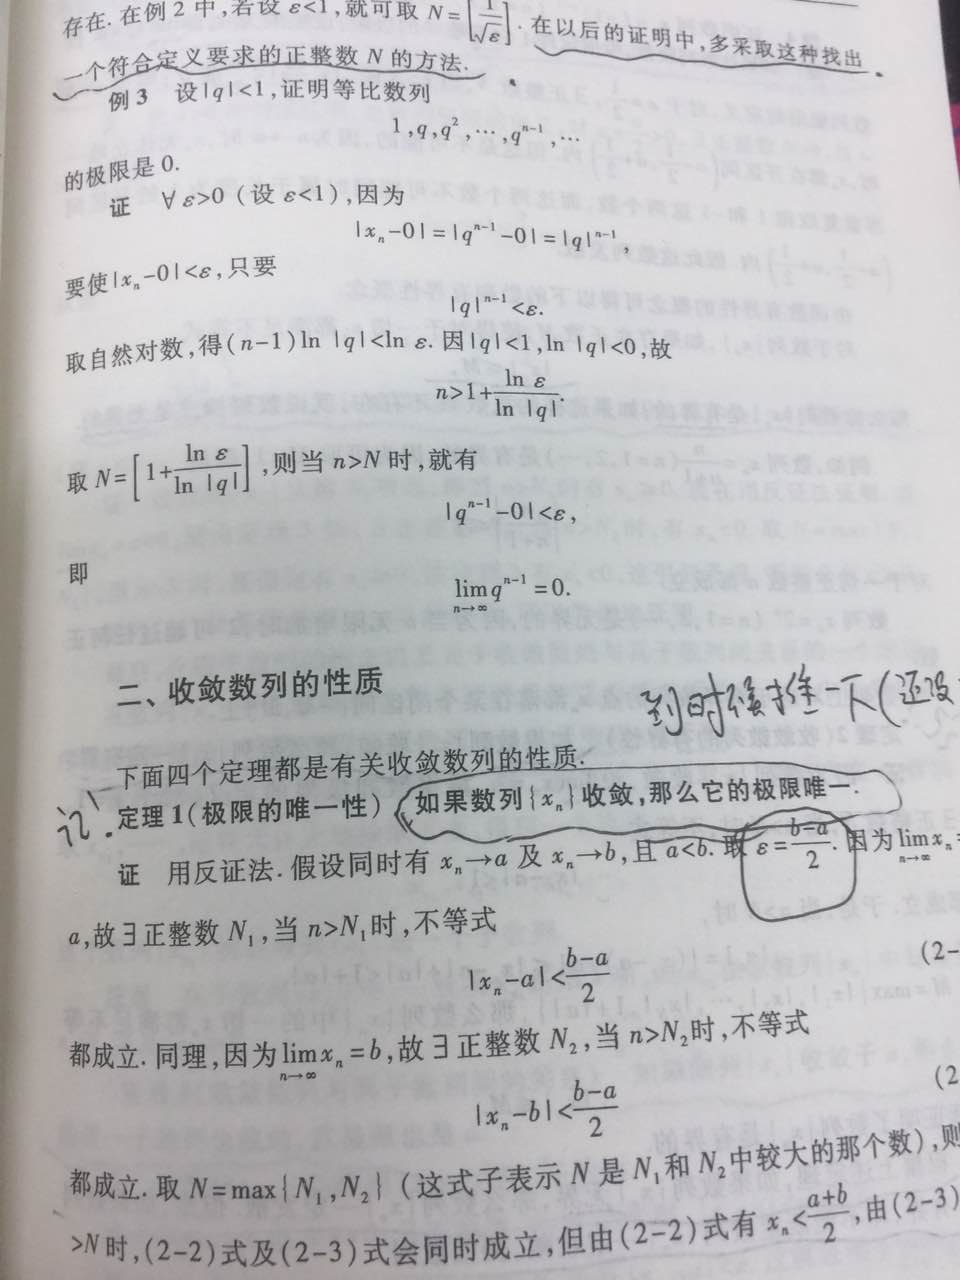 存在. 在例 2 中,若设 ε<1,就可取 N=[1/√ε]. 在以后的证明中,多采取这种找出
一个符合定义要求的正整数 N 的方法.
例 3 设|q|<1,证明等比数列
1,q,q²,…,qⁿ⁻¹,…
的极限是 0.
证 ∀ε>0 (设 ε<1),因为
|xₙ-0|=|qⁿ⁻¹-0|=|q|ⁿ⁻¹,
要使|xₙ-0|<ε,只要
|q|ⁿ⁻¹<ε.
取自然对数,得(n-1)ln |q|<ln ε. 因|q|<1,ln |q|<0,故
n>1+ln ε/ln |q|.
取 N=[1+ln ε/ln |q|],则当 n>N 时,就有
|qⁿ⁻¹-0|<ε,
即
lim n→∞ qⁿ⁻¹=0.
二、收敛数列的性质
到时候推一下(还没
下面四个定理都是有关收敛数列的性质.
记.
定理 1(极限的唯一性) 如果数列{xₙ}收敛,那么它的极限唯一.
证 用反证法. 假设同时有 xₙ→a 及 xₙ→b,且 a<b. 取 ε=(b-a)/2. 因为 lim n→∞ xₙ=
a,故∃正整数 N₁,当 n>N₁时,不等式
|xₙ-a|<(b-a)/2 (2-
都成立. 同理,因为 lim n→∞ xₙ=b,故∃正整数 N₂,当 n>N₂时,不等式
|xₙ-b|<(b-a)/2 (2
都成立. 取 N=max{N₁,N₂} (这式子表示 N 是 N₁和 N₂中较大的那个数),则
>N 时,(2-2)式及(2-3)式会同时成立,但由(2-2)式有 xₙ<(a+b)/2,由(2-3)